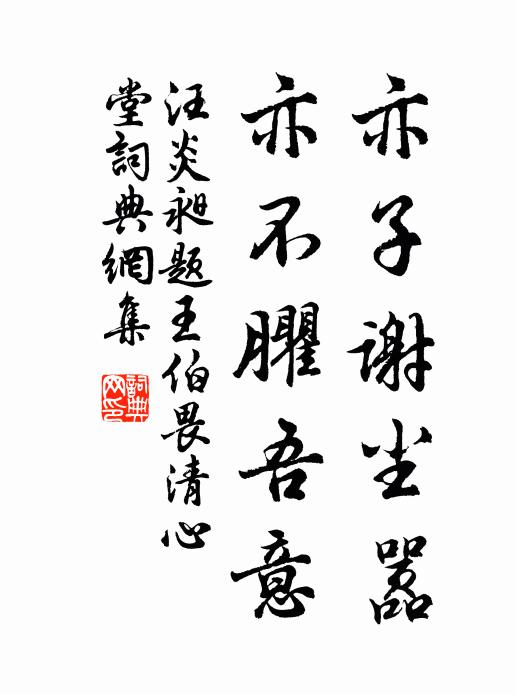 亦子谢尘嚣
亦不臞吾意
汪炎昶题王伯畏清心
堂词典網集
詞典網印